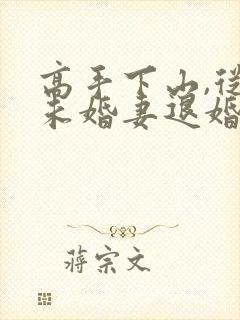 高手下山,從
未婚妻退婚
蔣宗文